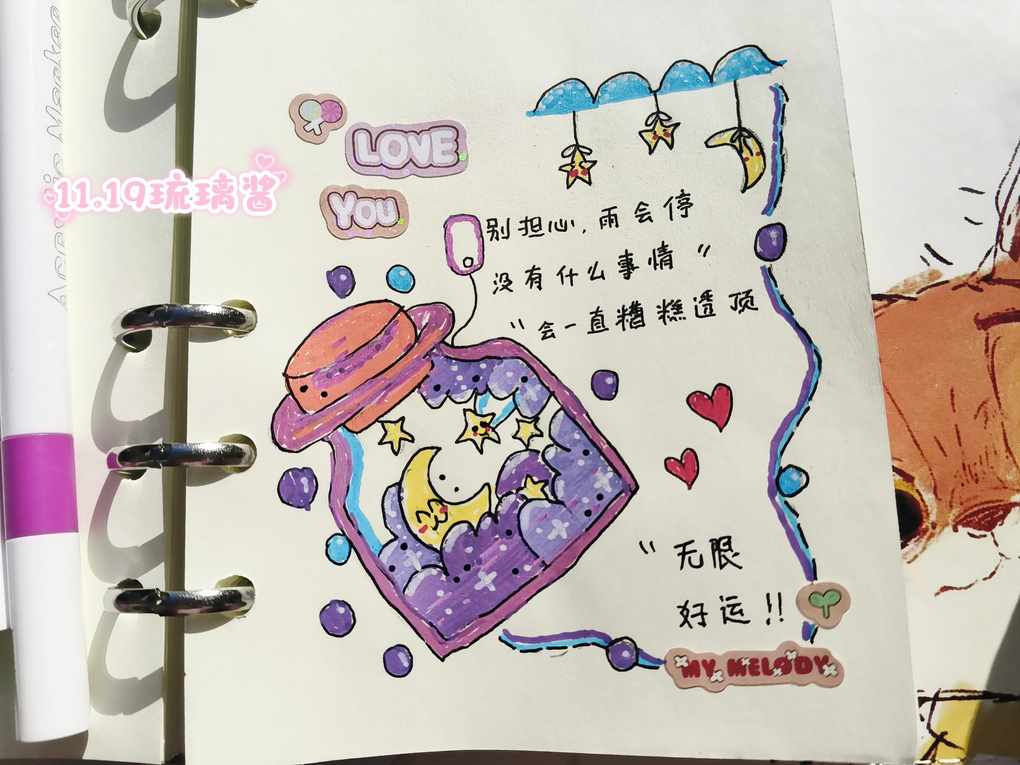 LOVE
YOU
11.19琉璃酱
别担心，雨会停
没有什么事情〃
〃会一直糟糕透顶
〃无限
好运!!
MY MELODY